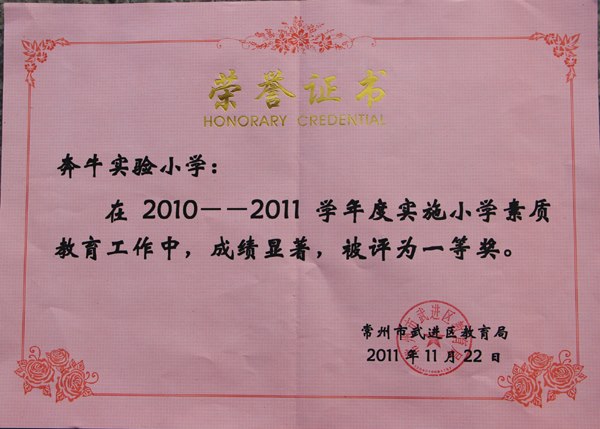 荣誉证书
HONORARY CREDENTIAL
奔牛实验小学：
在 2010——2011 学年度实施小学素质
教育工作中，成绩显著，被评为一等奖。
常州市武进区教育局
2011 年 11 月 22 日